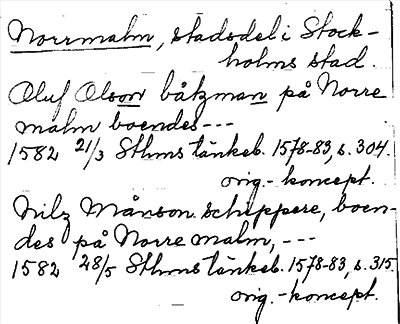 Norrmalm, stadsdel i Stock-
holms stad.
Oluf Olson båtzman på Norre
malm boendes ---
1582 21/3 Sthms tänkeb. 1578-83, s. 304.
orig.-koncept.
Nilz Månson scheppere, boen-
des på Norre malm, ---
1582 28/5 Sthms tänkeb. 1578-83, s. 315.
orig.-koncept.